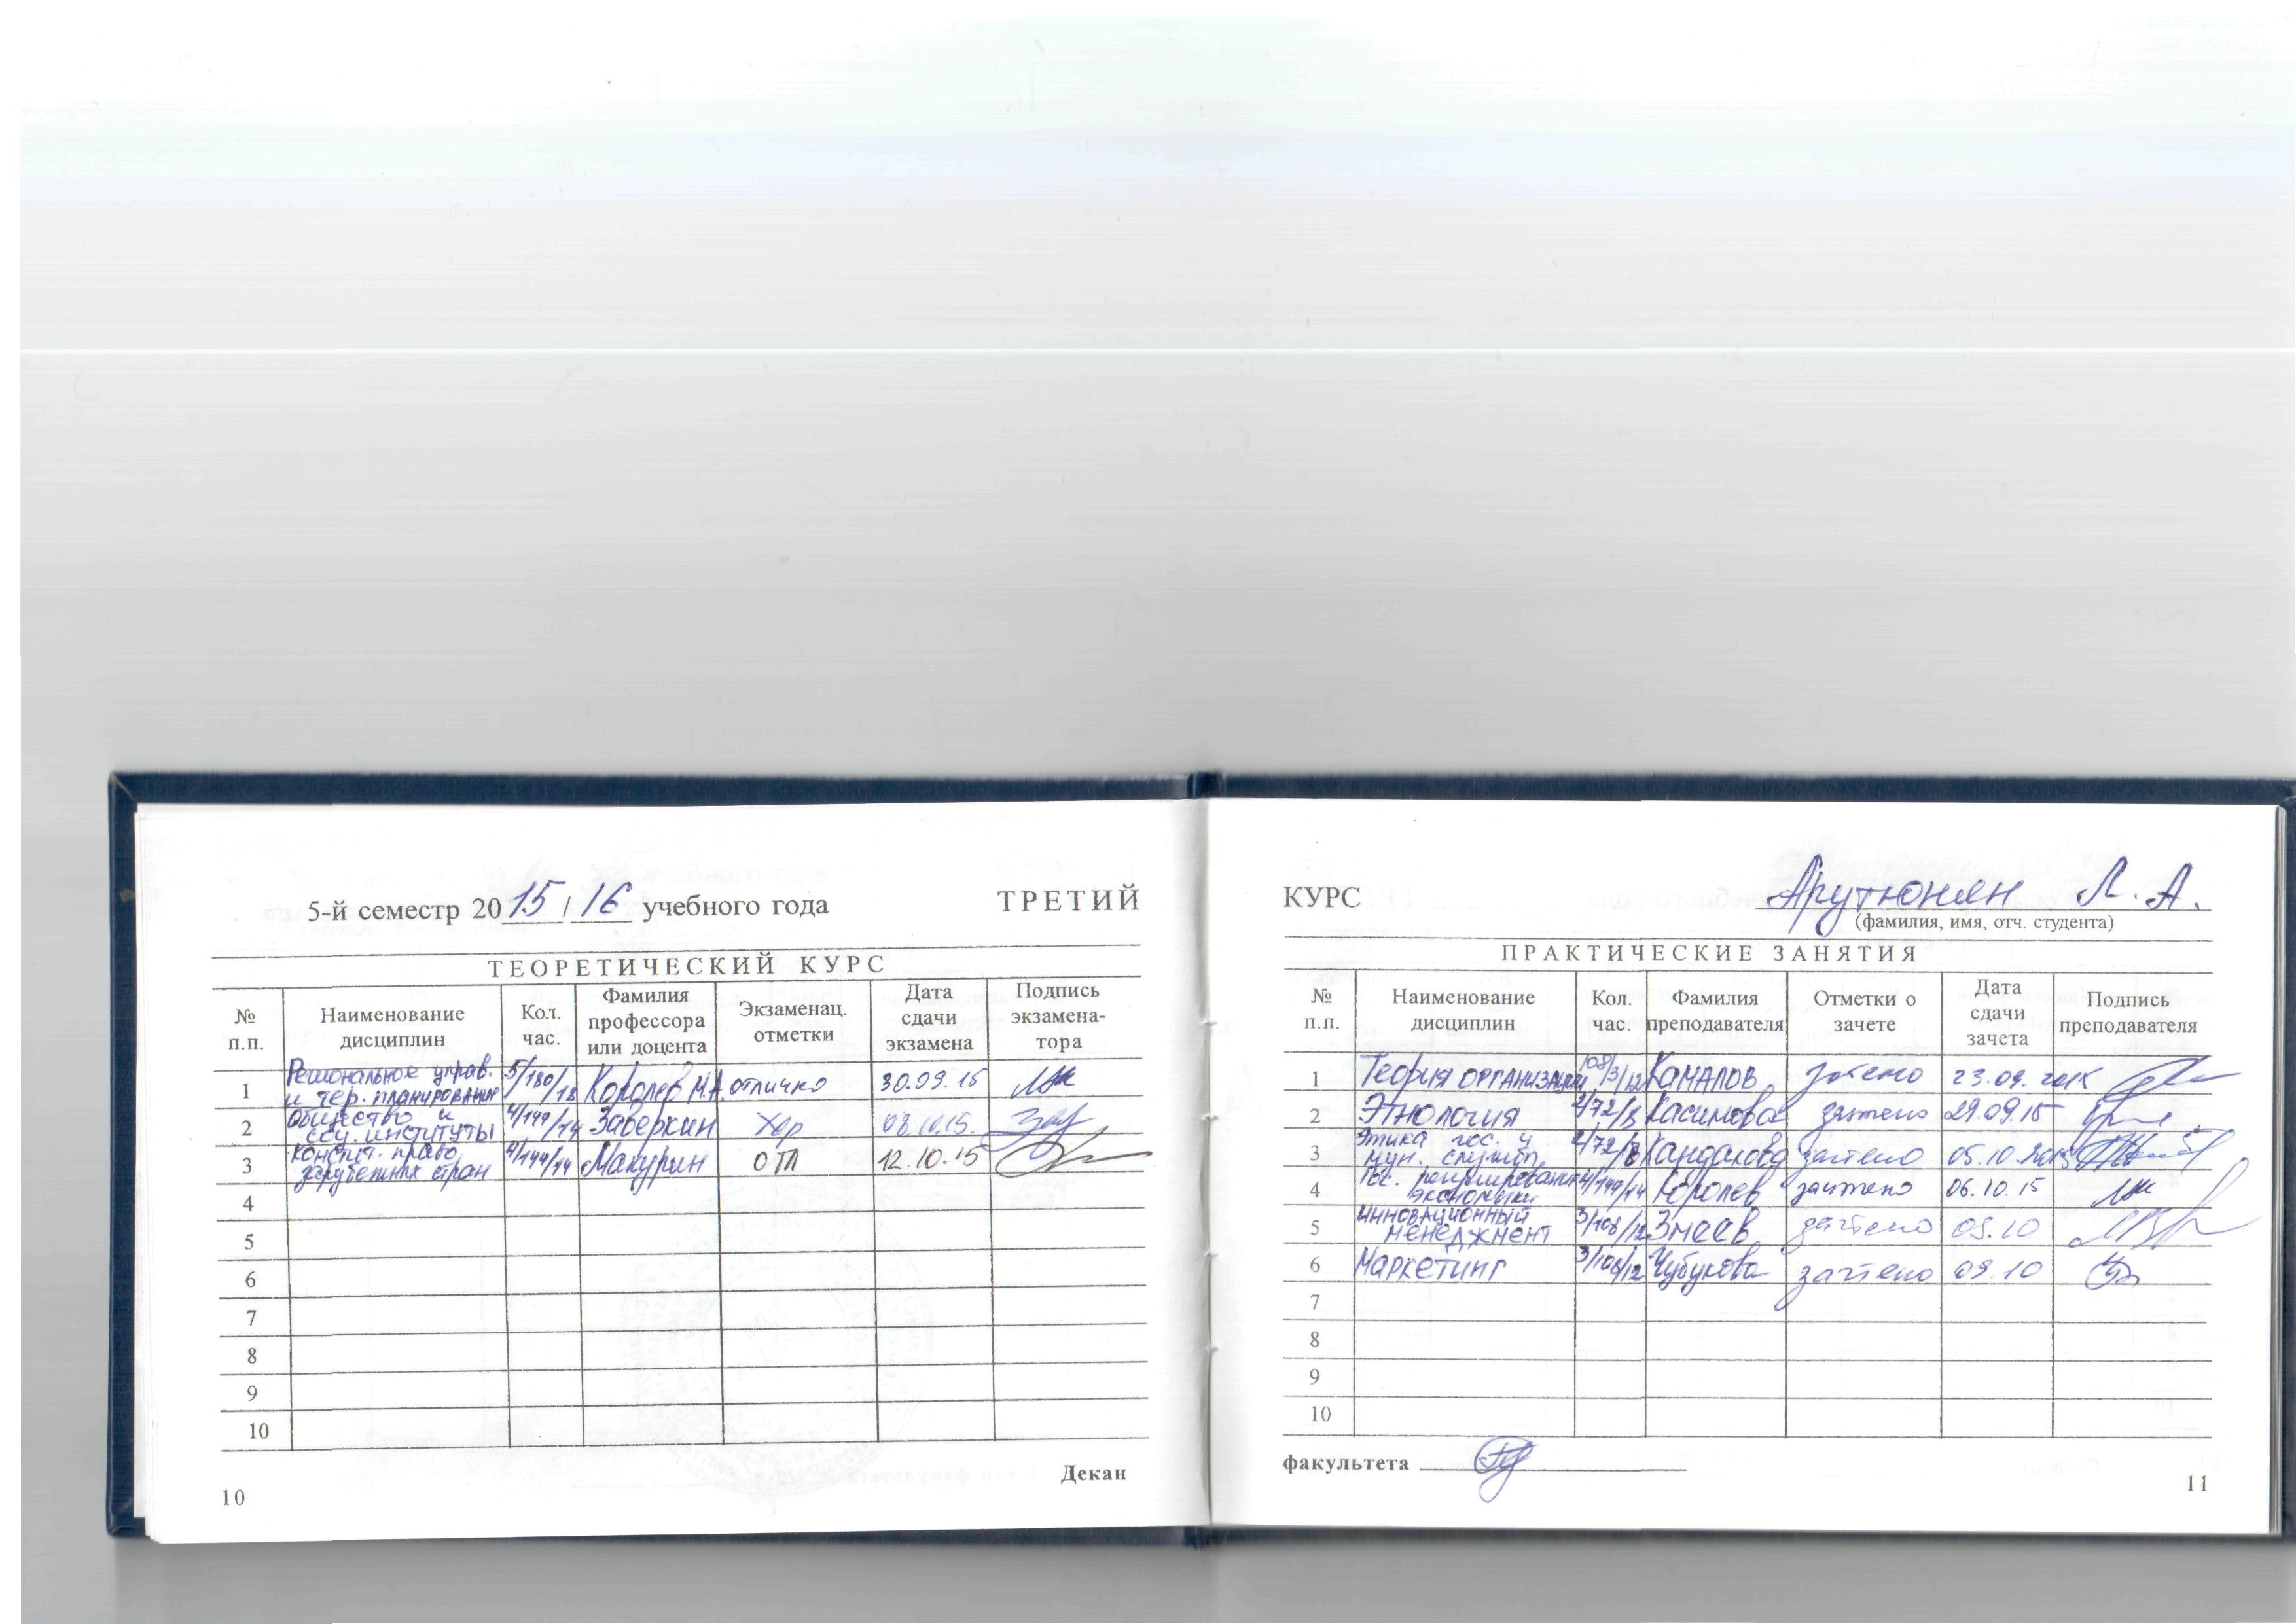 5-й семестр 2015/16 учебного года ТРЕТИЙ
ТЕОРЕТИЧЕСКИЙ КУРС
№ п.п. Наименование дисциплин Кол. час. Фамилия профессора или доцента Экзаменац. отметки Дата сдачи экзамена Подпись экзамена-тора
1 Региональное управ. и тер. планирование 5/180/18 Королев М.А. отлично 30.09.15
2 Общество и соц. институты 4/144/14 Заверкин Хор 08.10.15.
3 Констит. право зарубежных стран 4/144/14 Макурин отл 12.10.15
4
5
6
7
8
9
10
Декан
10
КУРС Арутюнян Л. А.
(фамилия, имя, отч. студента)
ПРАКТИЧЕСКИЕ ЗАНЯТИЯ
№ п.п. Наименование дисциплин Кол. час. Фамилия преподавателя Отметки о зачете Дата сдачи зачета Подпись преподавателя
1 Теория организации 108/3/12 Камалов зачтено 23.09.2015
2 Этнология 2/72/8 Касимова зачтено 29.09.15
3 Этика гос. и мун. служб 2/72/8 зачтено 05.10.2015
4 Гос. регулирование экономики 4/144/14 Королев зачтено 06.10.15
5 Инновационный менеджмент 3/108/12 Змеев зачтено 09.10
6 Маркетинг 3/108/12 Чубукова зачтено 09.10
7
8
9
10
факультета
11